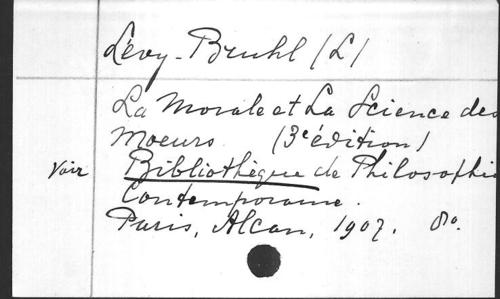 Lévy-Bruhl (L)
La Morale et La Science des
Moeurs. (3e édition)
Voir Bibliothèque de Philosophie
Contemporaine.
Paris, Alcan, 1907. 8o.